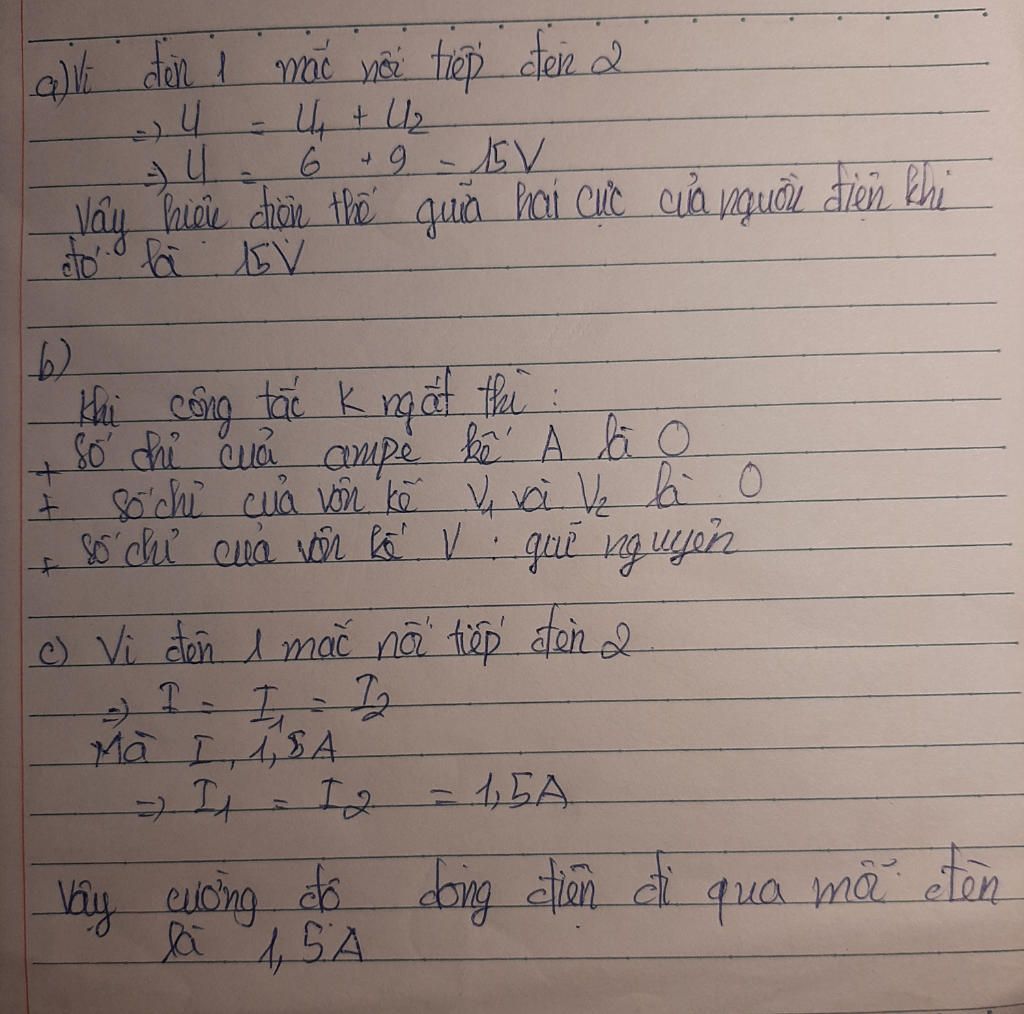 a) Vì đèn 1 mắc nối tiếp đèn 2
=> U = U1 + U2
=> U = 6 + 9 = 15V
Vậy hiệu điện thế giữa hai cực của nguồn điện khi
đó là 15V
b)
Khi công tắc K ngắt thì :
+ Số chỉ của ampe kế A là 0
+ Số chỉ của vôn kế V1 và V2 là 0
+ Số chỉ của vôn kế V : giữ nguyên
c) Vì đèn 1 mắc nối tiếp đèn 2
=> I = I1 = I2
Mà I, 1,5A
=> I1 = I2 = 1,5A
Vậy cường độ dòng điện đi qua mỗi đèn
là 1,5A